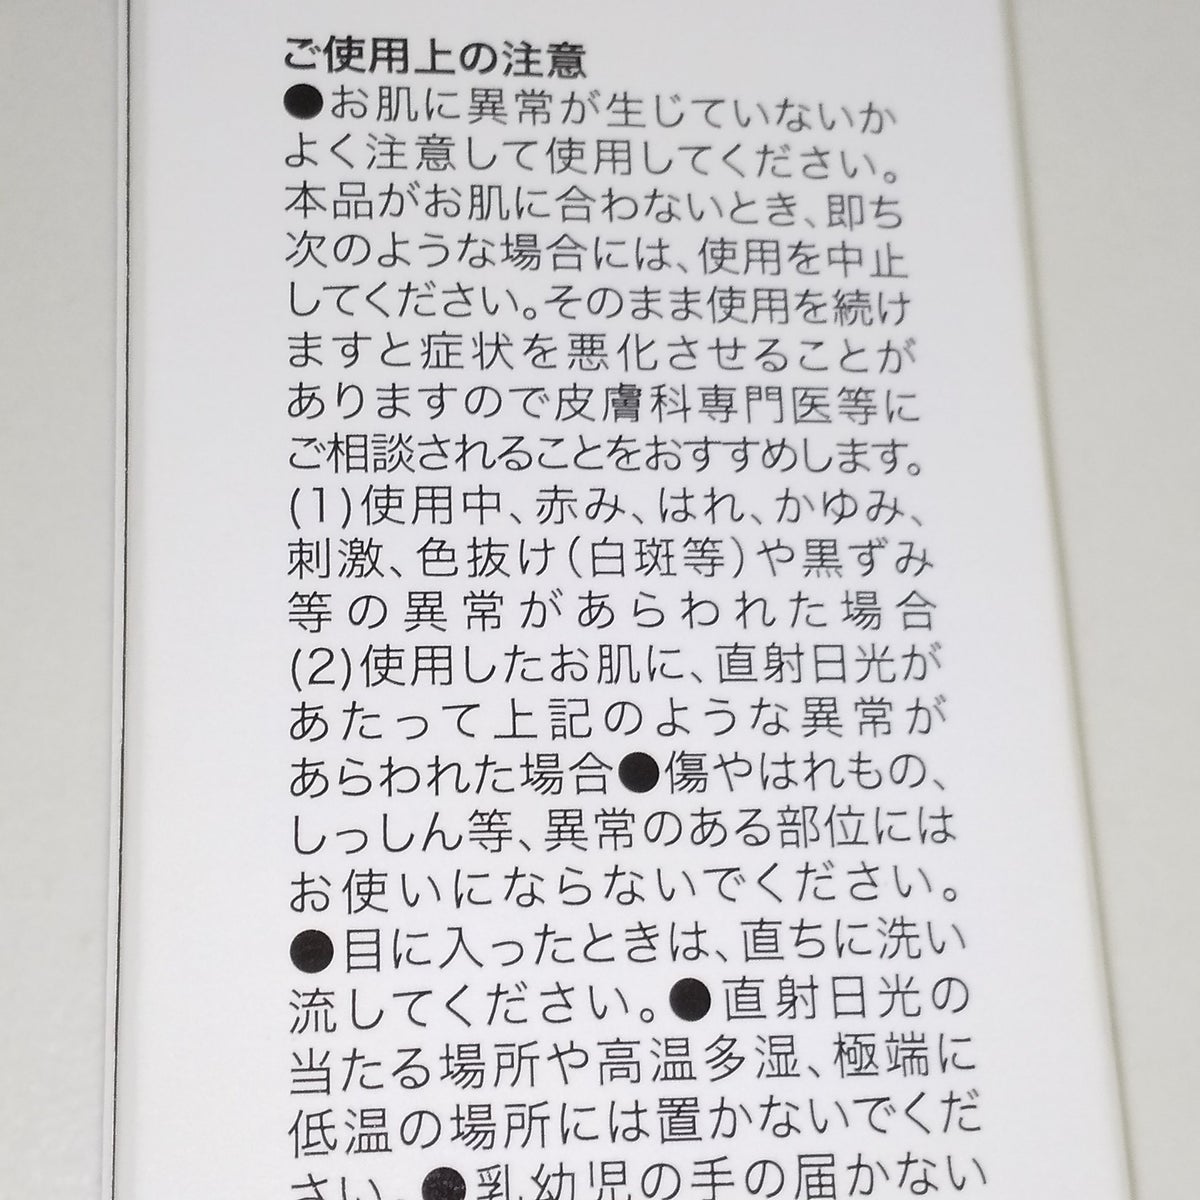 ご使用上の注意
●お肌に異常が生じていないか
よく注意して使用してください。
本品がお肌に合わないとき、即ち
次のような場合には、使用を中止
してください。そのまま使用を続け
ますと症状を悪化させることが
ありますので皮膚科専門医等に
ご相談されることをおすすめします。
(1)使用中、赤み、はれ、かゆみ、
刺激、色抜け(白斑等)や黒ずみ
等の異常があらわれた場合
(2)使用したお肌に、直射日光が
あたって上記のような異常が
あらわれた場合●傷やはれもの、
しっしん等、異常のある部位には
お使いにならないでください。
●目に入ったときは、直ちに洗い
流してください。●直射日光の
当たる場所や高温多湿、極端に
低温の場所には置かないでくだ
さい。●乳幼児の手の届かない